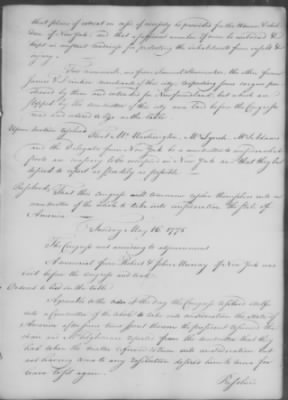 that places of retreat in case of necessity be provided for the Women & chil-
dren of New York; and that a sufficient number of men be embodied &
kept in constant readiness for protecting the inhabitants from insult &
injury.
Two memorials one from Samuel
James & merchants of this city respecting some
by them and intended for Newfoundland but which are
stopped by the committee of this city were laid before the Congress
read and ordered to lye on the table.
Upon motion resolved That Mr Washington, Mr Lynch, Mr S. Adams
and the Delegates from New York be a committee to consider what
posts are necessary to be occupied in New York and that they be
desired to report as speedily as possible.
Resolved That this congress will tomorrow resolve themselves into a
committee of the whole to take into consideration the state of
America
Tuesday May 16. 1775
The Congress met according to adjournment
A memorial from Robert & John Murray of New York was
laid before the congress and read.
Ordered to lie on the table
Agreeable to the order of the day the Congress resolved itself
into a Committee of the whole to take into consideration the State of
America after some time spent therein the president resumed the
chair and Mr reported from the committee that they
had taken the matter referred to them into consideration but
not having come to any resolution desired him to move for
leave to sit again.
Resolved